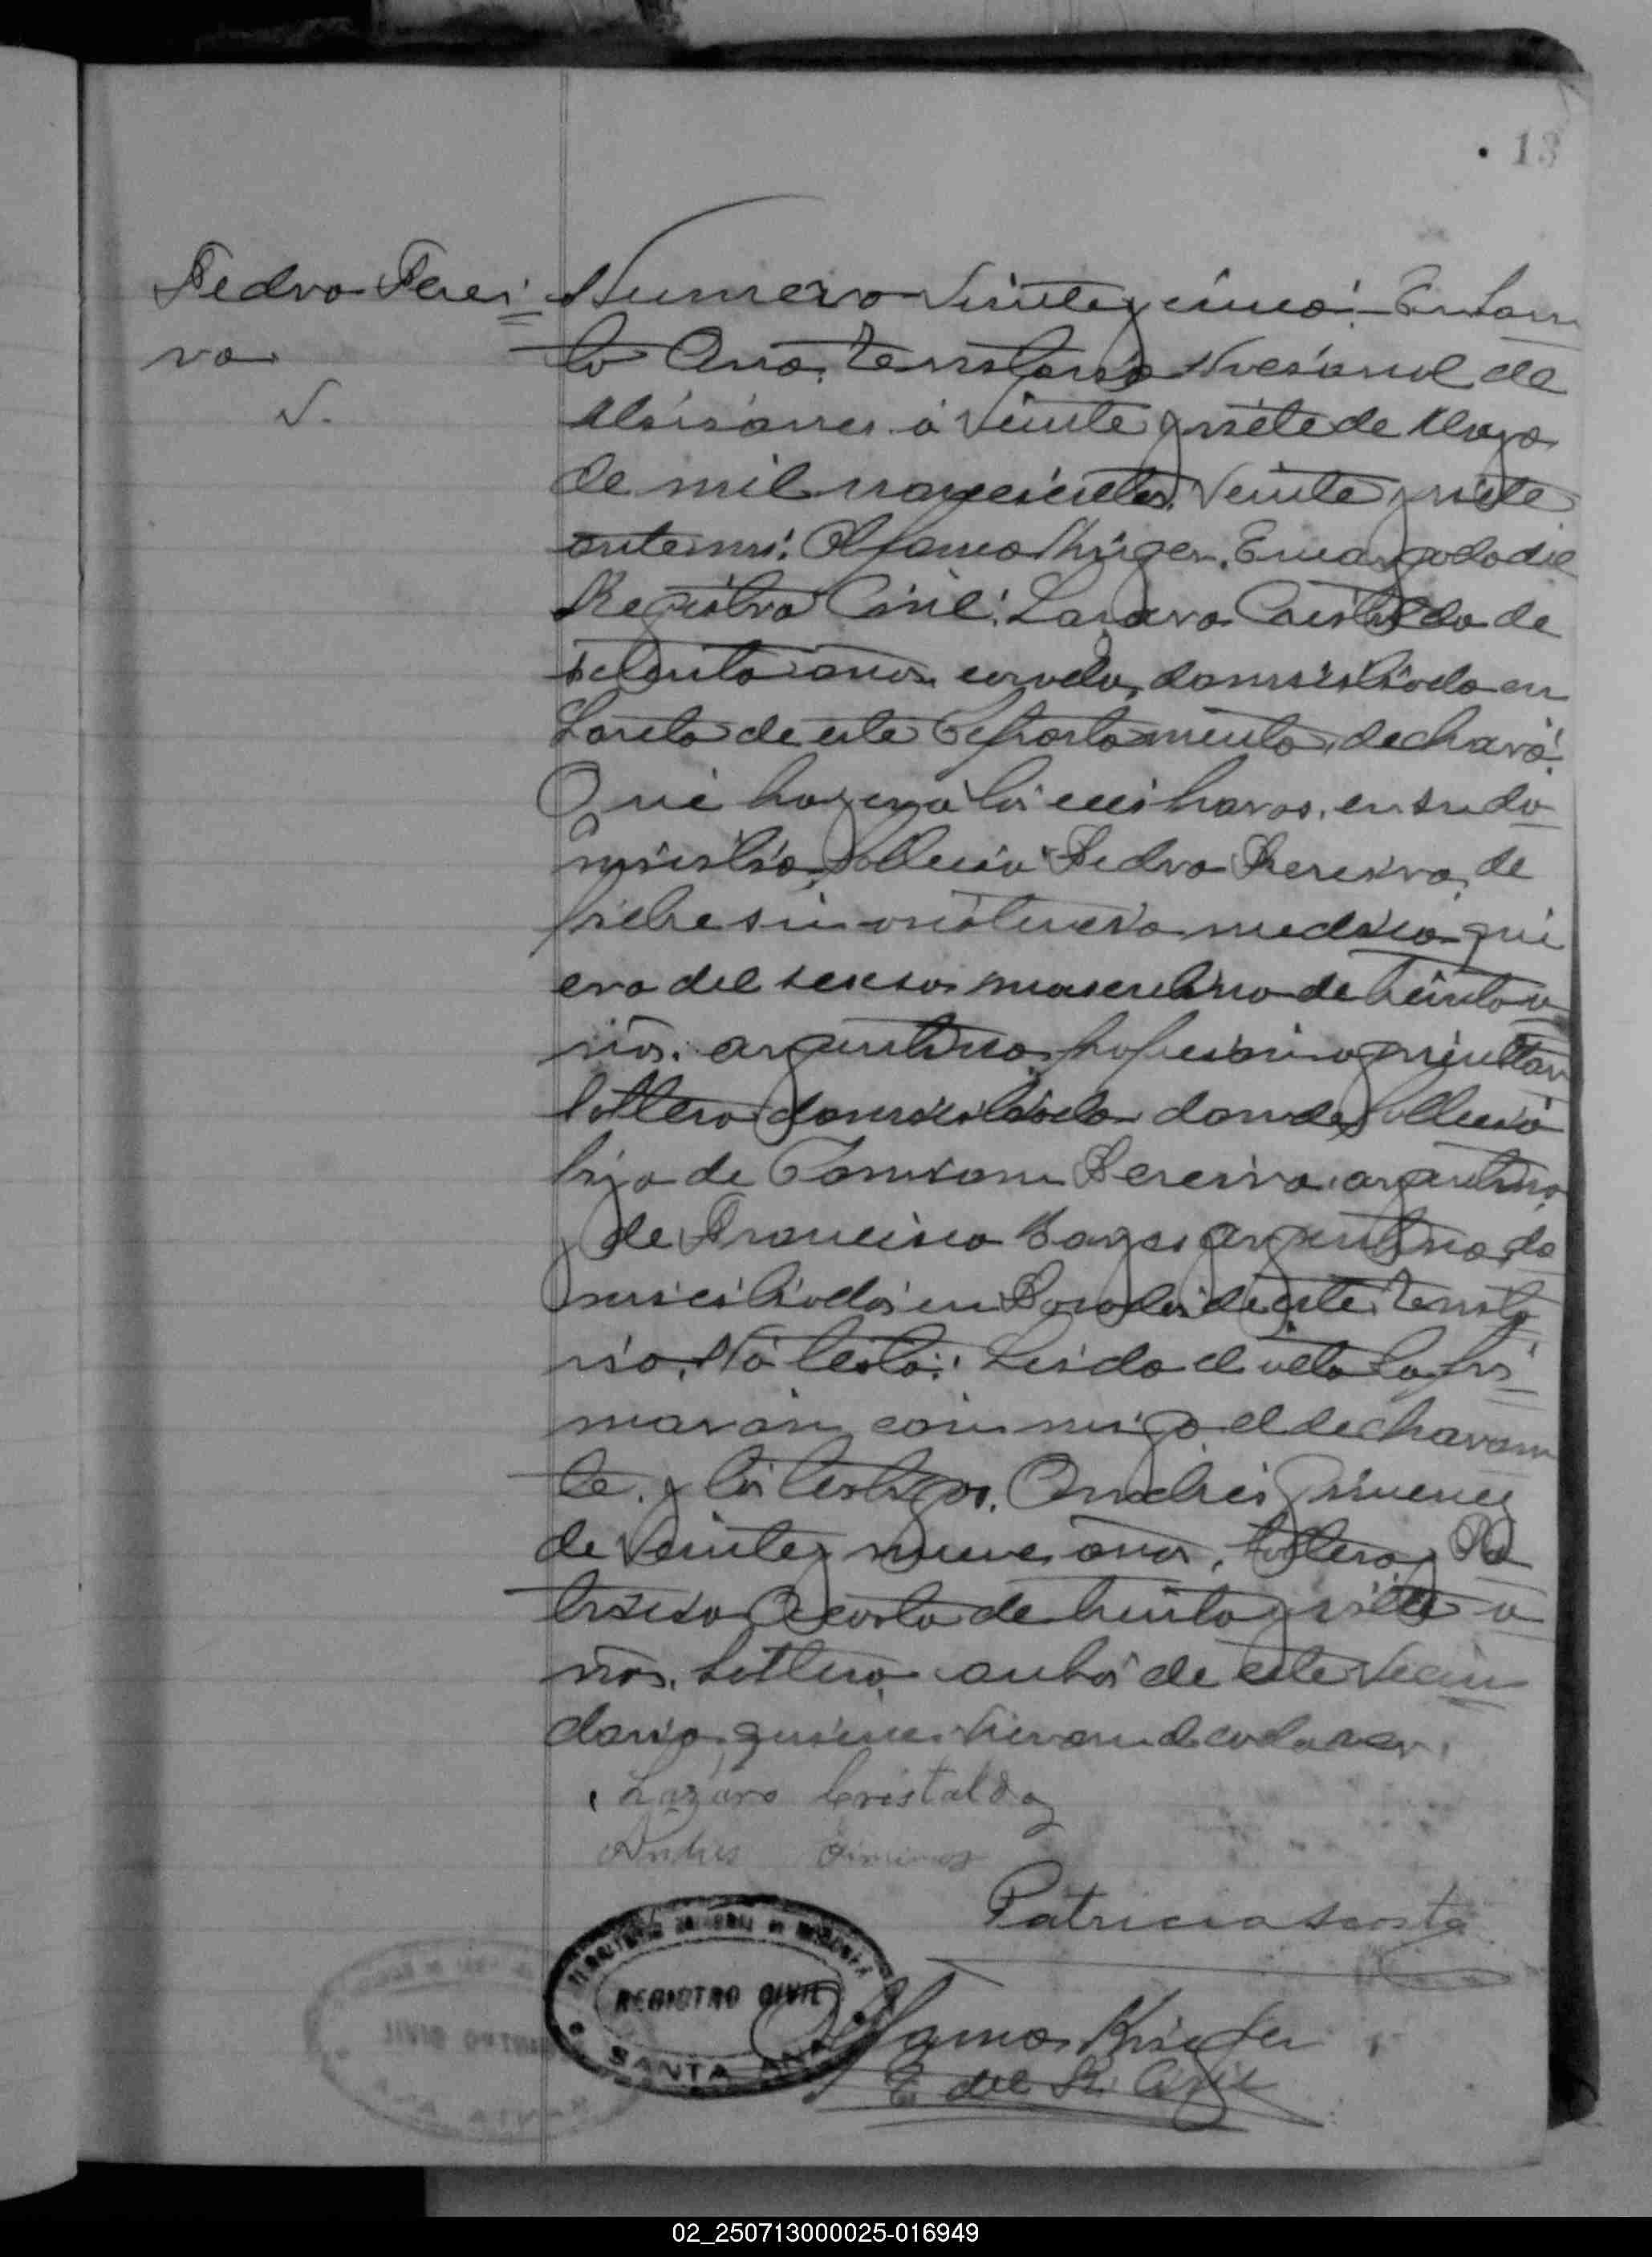 13
Pedro Perei
ra
Numero Veinte y cinco. En San
ta Ana, Territorio Nacional de
Misiones á veinte y siete de Mayo
de mil novecientos veinte y siete
ante mi: Kriger, Encargado del
Registro Civil: Lazaro Cristaldo de
setenta anos casado, domiciliado en
Loreto de este Departamento, declaró:
Que hoy en su do
micilio, fallecio Pedro Pereira, de
fiebre sin asistencia medica que
era del sexso masculino de treinta a
ños. argentino, profesion agricultor
soltero domiciliado donde fallecio
hijo de Pereira argentino,
y de Francisca argentina do
miciliados en Posadas de este Territo
rio. No testó: Leida el acta la fir
maron conmigo el declaran
te. y los testigos. Andres Jimenez
de Veinte y nueve anos, soltero, y Pa
tricio Acosta de treinta y siete a
ños, soltero ambos de este Vecin
dario, quienes vieron el cadaver.
Lazaro Cristaldo
Andres Jimenez
Patricio Acosta
TERRITORIO NACIONAL DE MISIONES
REGISTRO CIVIL
SANTA ANA
Krieger
E. del R. Civil
02_250713000025-016949